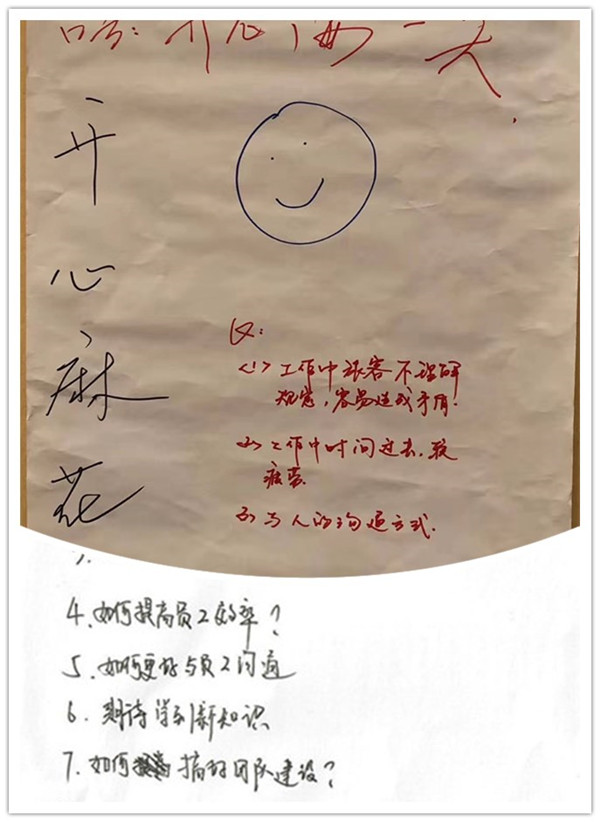 开心
一笑
开
心
麻
花
<1> 工作中旅客不理解
规定,容易造成矛盾!
<2> 工作中时间过长,较
疲劳.
<3> 与人的沟通方式.
4.如何提高员工效率?
5.如何更好与员工沟通
6.期待学到新知识
7.如何搞好团队建设?